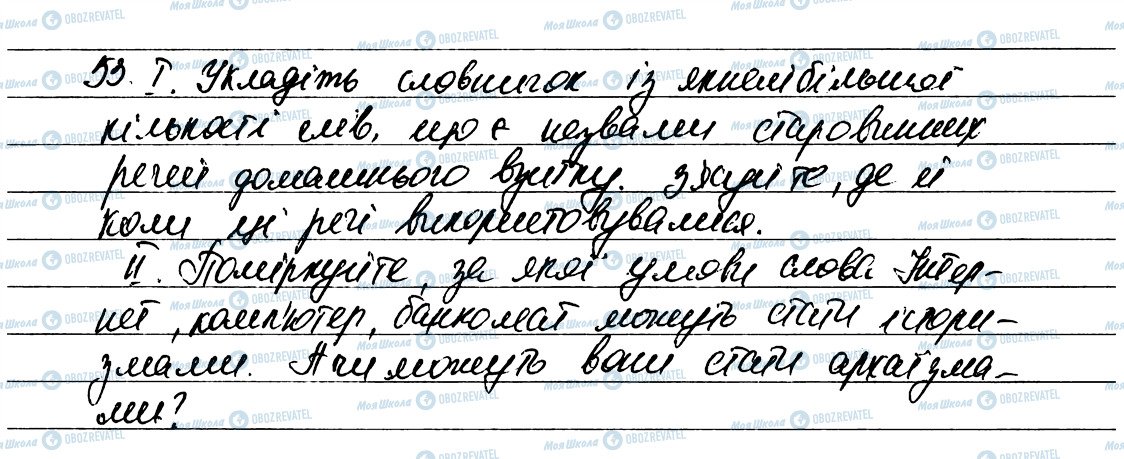 53. І. Укладіть словничок із якнайбільшої
кількості слів, що є назвами старовинних
речей домашнього вжитку. З'ясуйте, де й
коли ці речі використовувалися.
ІІ. Поміркуйте, за якої умови слова Інтер-
нет, комп'ютер, банкомат можуть стати істори-
змами. А чи можуть вони стати архаїзма-
ми?